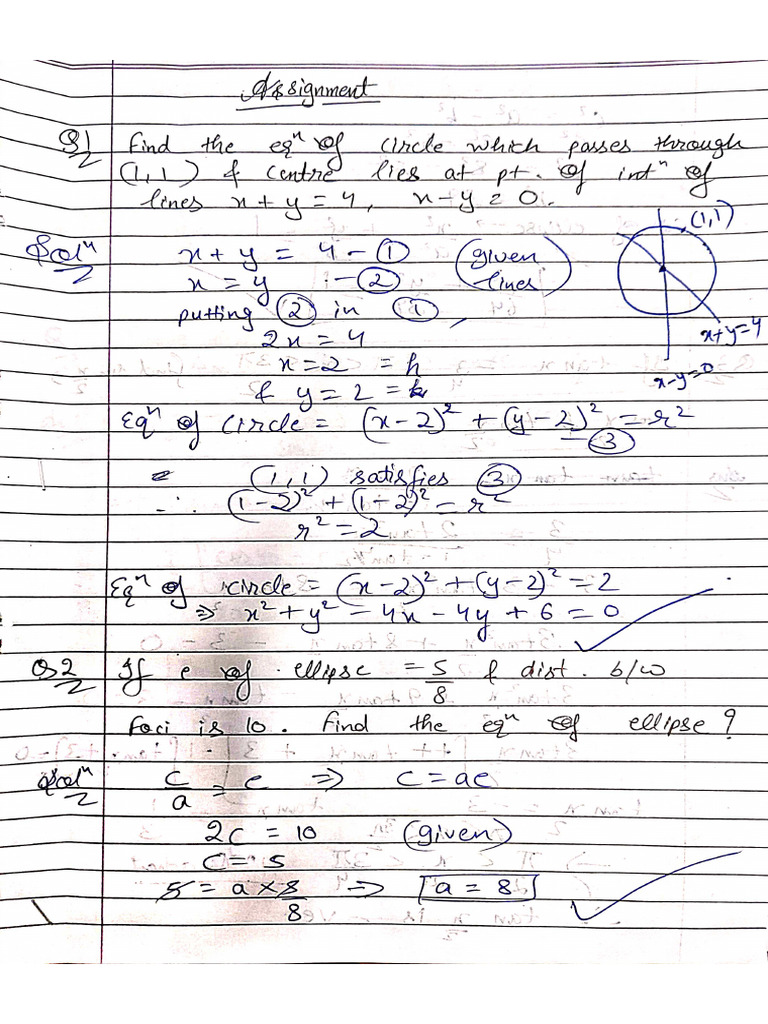 Assignment
Q1 Find the eqⁿ of circle which passes through
(1,1) & centre lies at pt. of intⁿ of
lines x + y = 4, x - y = 0.
Solⁿ x + y = 4 - ① (given
x = y - ② lines)
putting ② in ①,
2x = 4
x = 2 = h
& y = 2 = k
Eqⁿ of circle = (x-2)² + (y-2)² = r²
- ③
(1,1) satisfies ③
∴ (1-2)² + (1-2)² = r²
r² = 2
Eqⁿ of circle = (x-2)² + (y-2)² = 2
⇒ x² + y² - 4x - 4y + 6 = 0
(1,1)
x+y=4
x-y=0
Q2 If e of ellipse = 5/8 & dist. b/w
foci is 10. Find the eqⁿ of ellipse?
Solⁿ c/a = e ⇒ c = ae
2c = 10 (given)
c = 5
5 = a × 5/8 ⇒ a = 8